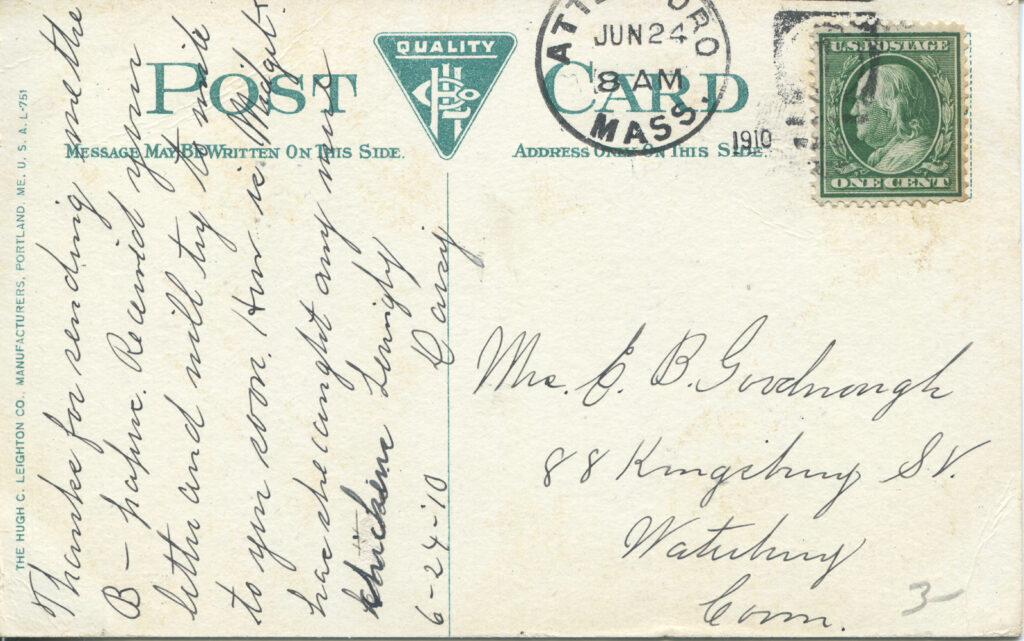 POST CARD
QUALITY
MESSAGE MAY BE WRITTEN ON THIS SIDE.
ADDRESS ONLY ON THIS SIDE.
THE HUGH C. LEIGHTON CO., MANUFACTURERS, PORTLAND, ME. U. S. A. L-751
JUN 24
8 AM
MASS.
1910
U.S. POSTAGE
ONE CENT
Thanks for sending me the
B- paper. Received your
letter and will try to write
to you soon. How is Midget.
has she caught any more
chickens
6-24-'10
Mrs. E. B. Goodnough
88 Kingsbury St.
Waterbury
Conn.
3-